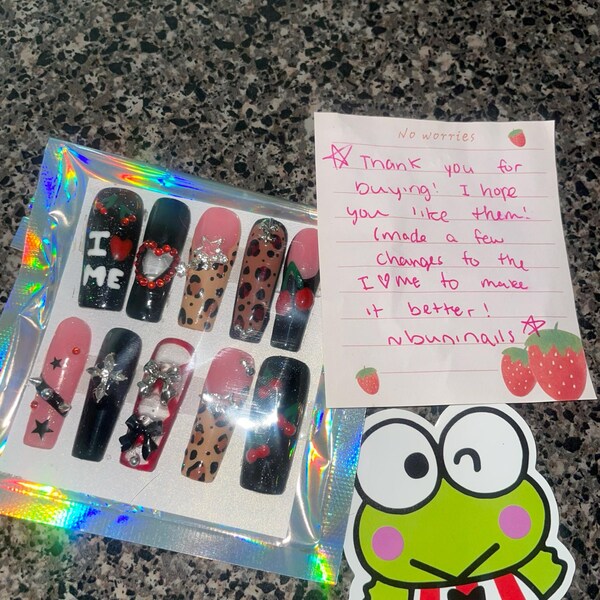 I ♥
ME
No worries
☆ Thank you for
buying! I hope
you like them!
I made a few
changes to the
I ♡ ME to make
it better!
~buninails ☆